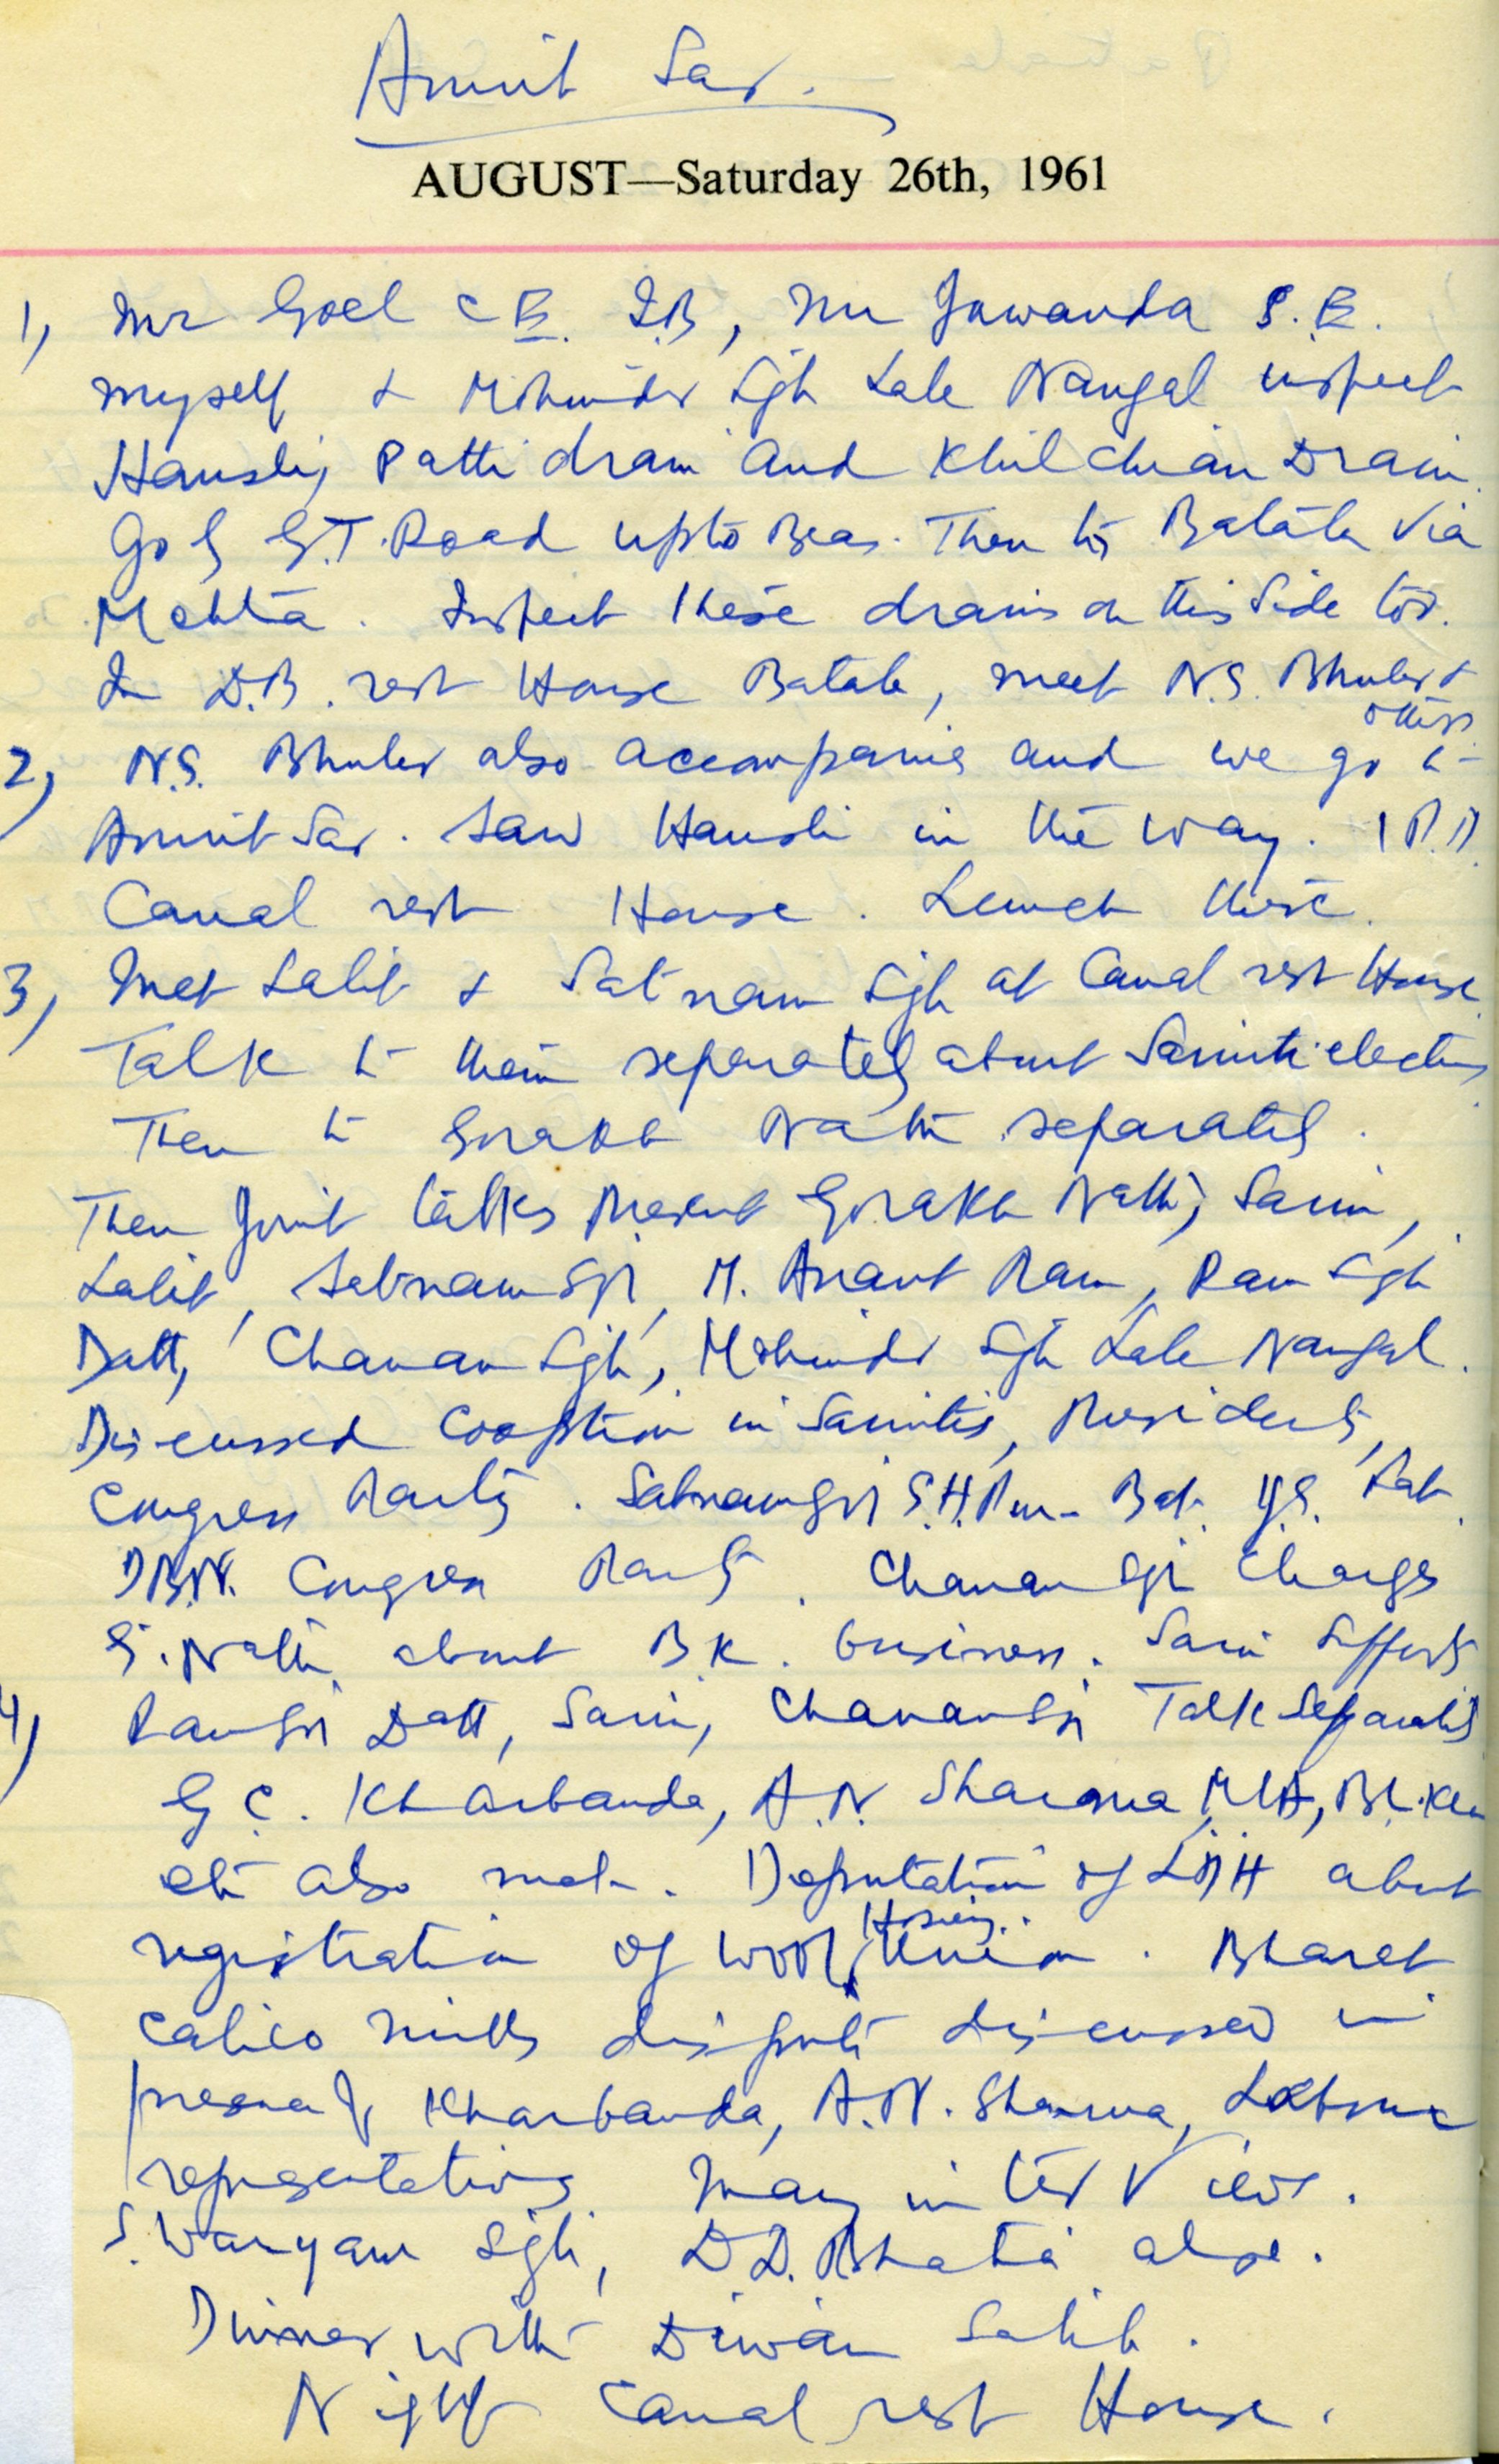 Amrit Sar.
AUGUST—Saturday 26th, 1961
1) Mr Goel C E. I.B, Mr Jawanda S.E.
myself & Mohinder Sgh Lale Nangal inspect
Hansli, Patti drain and Khilchian Drain.
Go by G.T. Road upto Beas. Then to Batala via
Mehta. Inspect these drains on this side too.
In D.B. rest House Batala, meet N.S. Bhuler &
others.
2) N.S. Bhuler also accompanies and we go to
Amrit Sar. Saw Hansli in the way. 1 P.M.
Canal rest House. Lunch there.
3) Met Lalit & Satnam Sgh at Canal rest House.
Talk to them separately about Samiti elections.
Then to Gorakh Nath separately.
Then Joint talks Present Gorakh Nath, Sarin,
Lalit, Satnam Sgh, M. Anant Ram, Ram Sgh
Datt, Chanan Sgh, Mohinder Sgh Lale Nangal.
Discussed Cooption in Samitis, Presidents,
Congress Party. Satnam Sgh S.H.Pur - Bat.
Congress Party. Chanan Sgh Charges
G. Nath about B.K. business. Sarin Efforts
4) Ram Sgh Datt, Sarin, Chanan Sgh Talk Separately
G C. Kharbanda, A.N. Sharma MLA,
etc also met. Deputation of about
registration of Wool Hosiery Union. Bharat
Calico Mills dispute discussed in
presence of Kharbanda, A.N. Sharma, Labour
representatives. Many interviews.
S. Waryam Sgh, D.D. Bhatia also.
Dinner with Diwan Sahib.
Night Canal rest House.